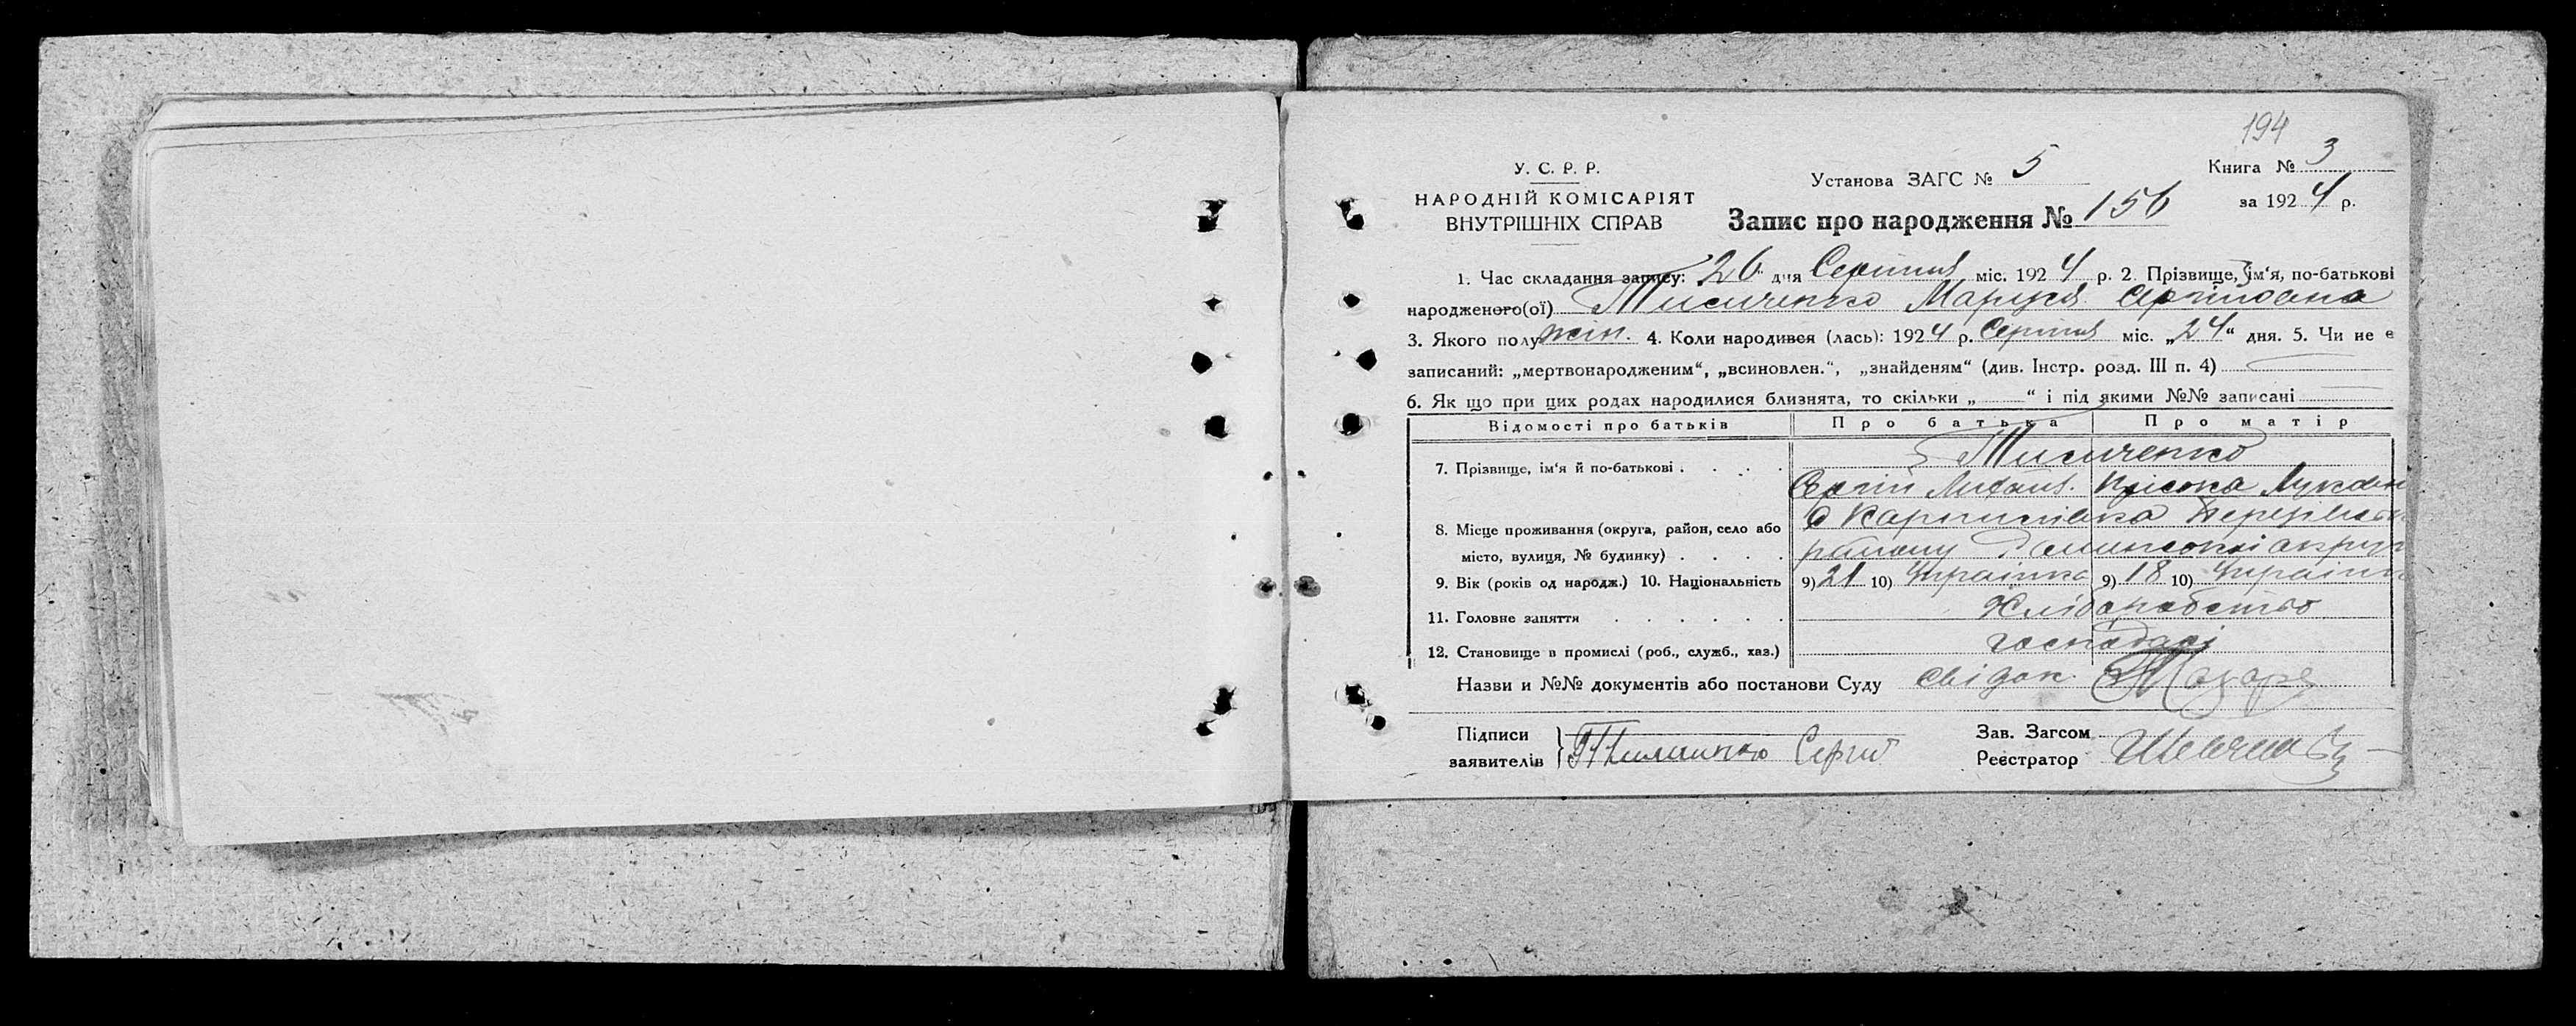 194
У. С. Р. Р.
НАРОДНІЙ КОМІСАРІЯТ
ВНУТРІШНІХ СПРАВ
Установа ЗАГС № 5
Книга № 3
за 1924 р.
Запис про народження № 156
1. Час складання запису: 26 дня Серпня міс. 1924 р. 2. Прізвище, ім'я, по-батькові
народженого(ої) Тисиченко Маруся
3. Якого полу жін. 4. Коли народився (лась): 1924 р. Серпня міс. „24“ дня. 5. Чи не є
записаний: „мертвонародженим“, „всиновлен.“, „знайденям“ (див. Інстр. розд. III п. 4)
6. Як що при цих родах народилися близнята, то скільки „ “ і під якими №№ записані
Відомості про батьків Про батька Про матір
7. Прізвище, ім'я й по-батькові . . . . Тисиченко
Сергій
8. Місце проживання (округа, район, село або
місто, вулиця, № будинку) . . . . округи
9. Вік (років од народж.) 10. Національність 9) 21 10) 9) 18 10)
11. Головне заняття . . . . . . Хліборобство
12. Становище в промислі (роб., служб., хаз.) господарі
Назви и №№ документів або постанови Суду свідок
Підписи
заявителів Сергій
Зав. Загсом
Реєстратор